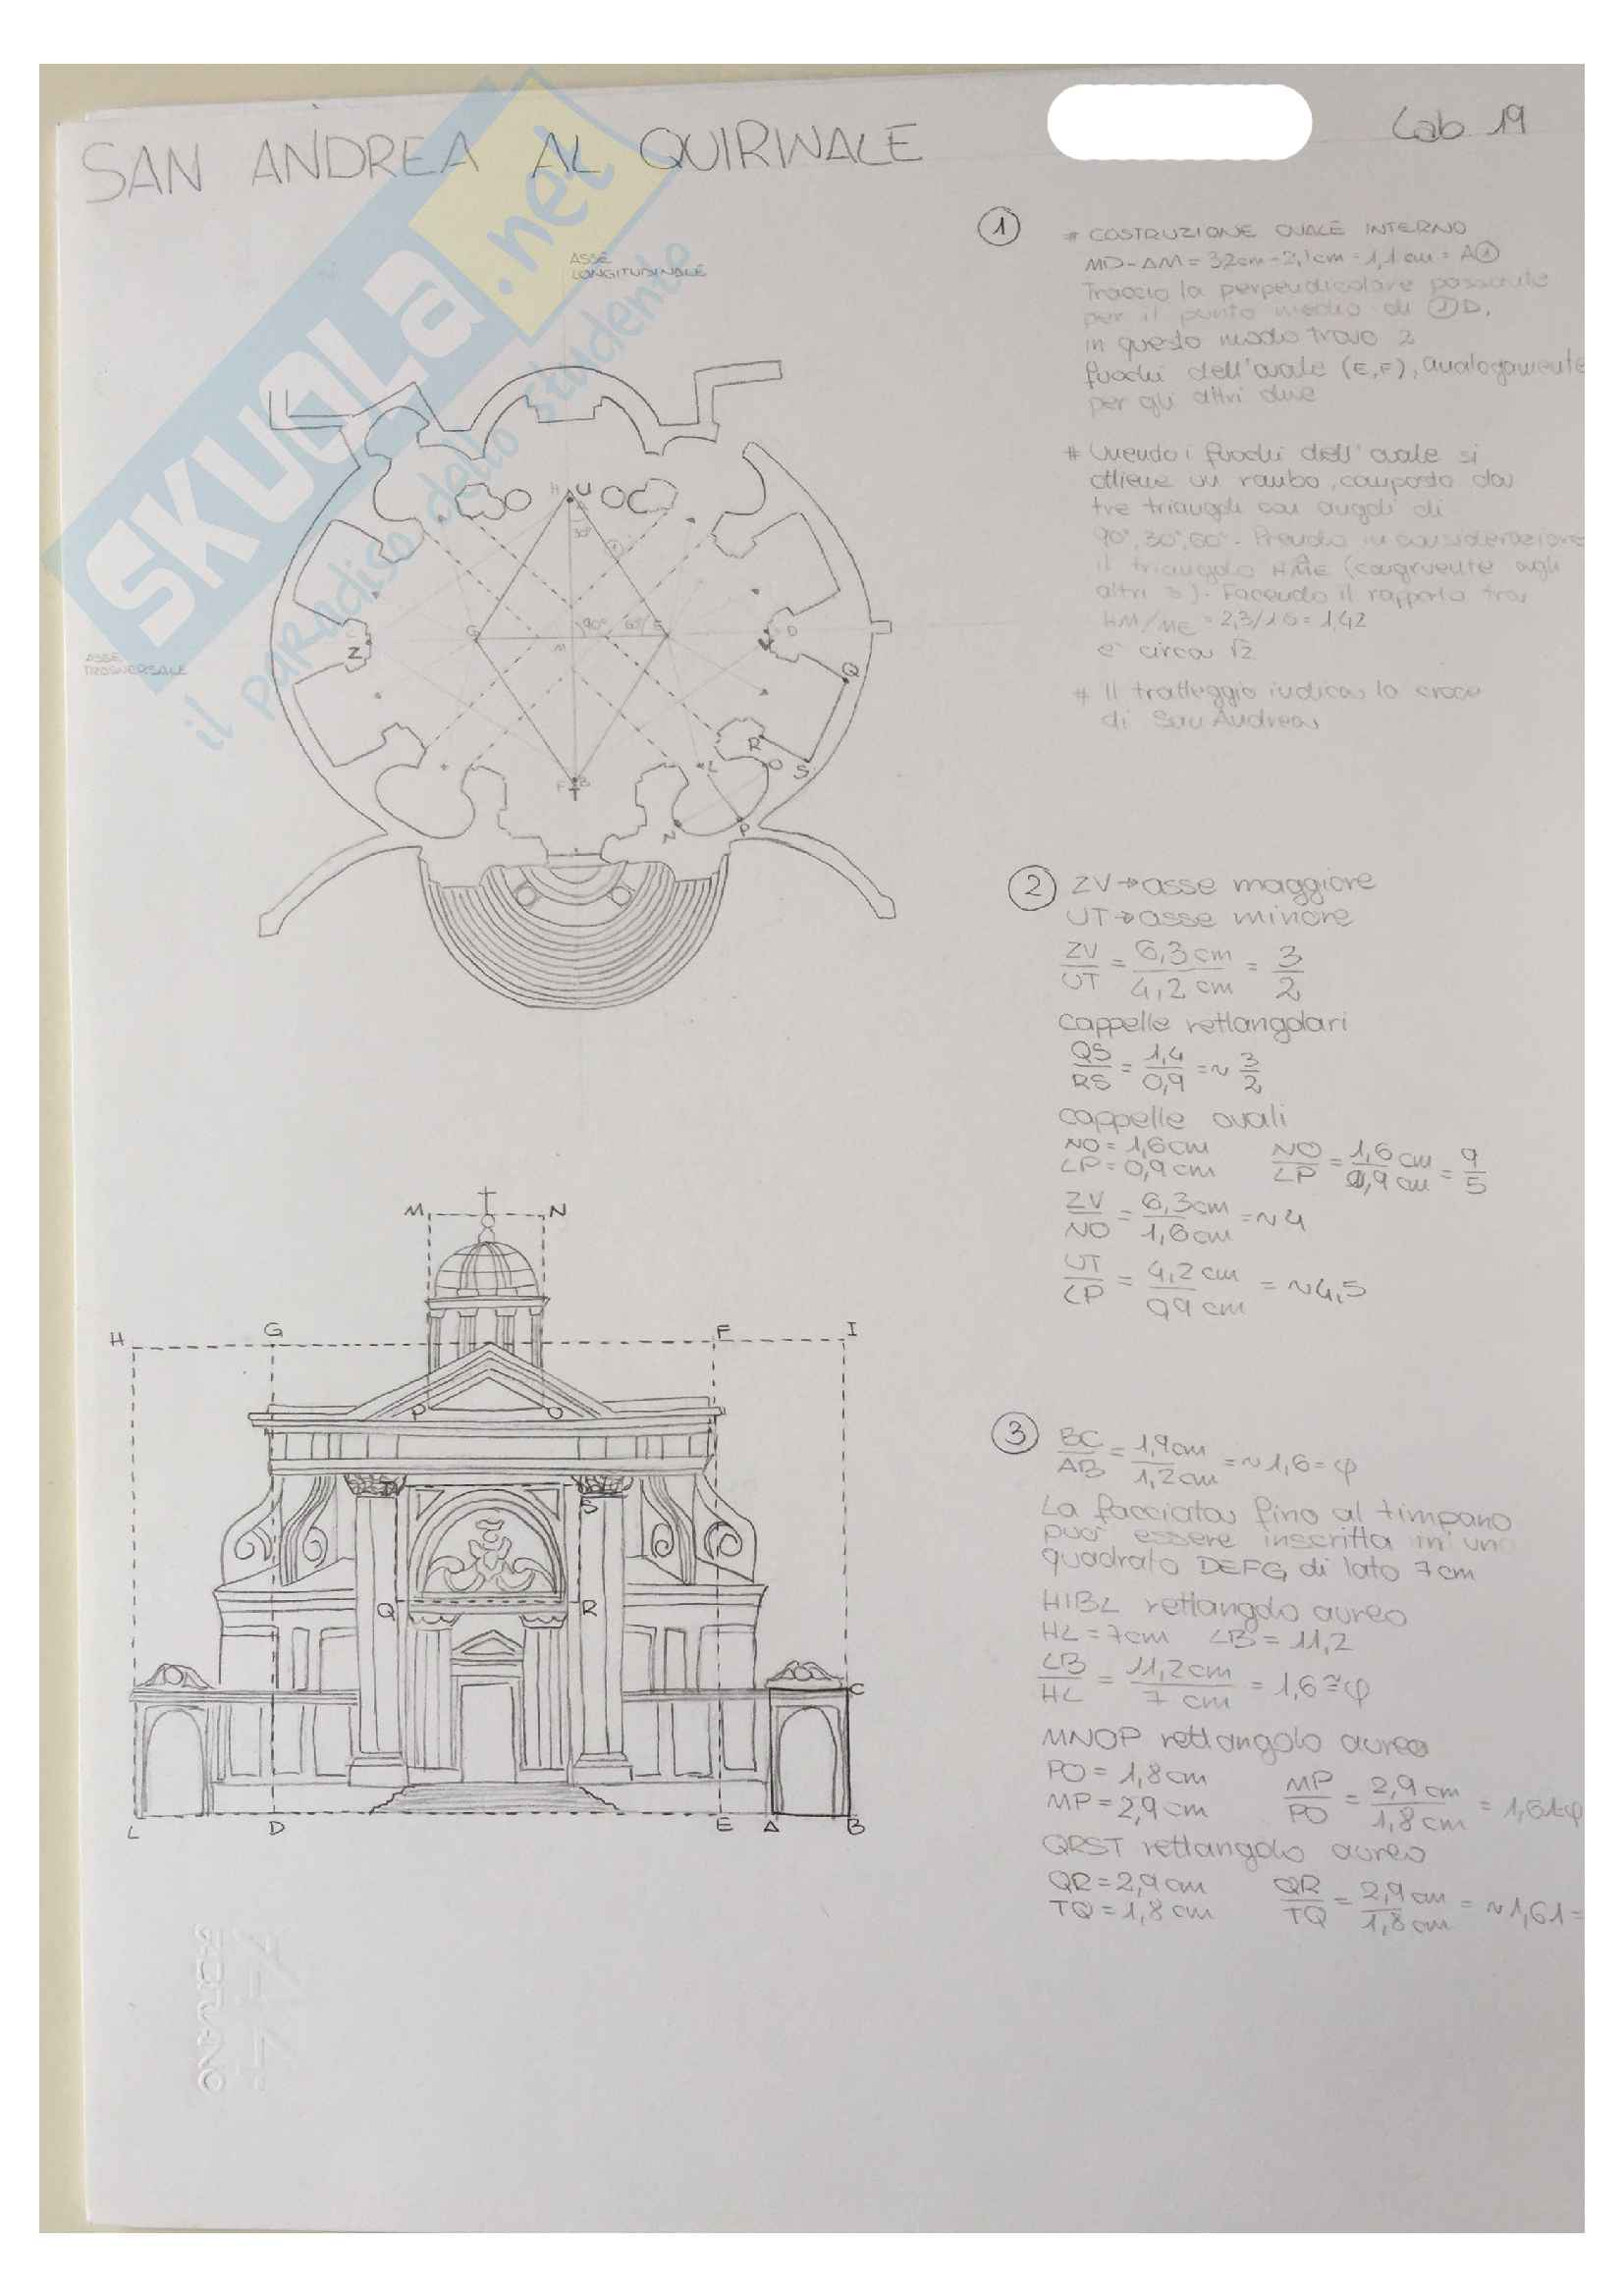 SAN ANDREA AL QUIRINALE
Lab 19
SKUOLA.net
il paradiso dello studente
ASSE
LONGITUDINALE
ASSE
TRASVERSALE
H U
30°
1
G 90° 60° E
M
Z
V D
Q
R
S
O
L
N
P
F B
T
1
# COSTRUZIONE OVALE INTERNO
MD-AM = 3,2cm - 2,1cm = 1,1 cm = A①
Traccio la perpendicolare passante
per il punto medio di ①D,
in questo modo trovo 2
fuochi dell'ovale (E,F), analogamente
per gli altri due
# Unendo i fuochi dell'ovale si
ottiene un rombo, composto da
tre triangoli con angoli di
90°, 30°, 60°. Prendo in considerazione
il triangolo HME (congruente agli
altri 3). Facendo il rapporto tra
HM/ME = 2,3/1,6 = 1,42
e' circa √2
# Il tratteggio indica la croce
di San Andrea
2
ZV → asse maggiore
UT → asse minore
ZV/UT = 6,3 cm/4,2 cm = 3/2
cappelle rettangolari
QS/RS = 1,4/0,9 = ~ 3/2
cappelle ovali
NO = 1,6 cm
LP = 0,9 cm
NO/LP = 1,6 cm/0,9 cm = 9/5
ZV/NO = 6,3cm/1,6cm = ~4
UT/LP = 4,2 cm/0,9 cm = ~4,5
M N
H G F I
P O
T S
Q R
C
L D E A B
3
BC/AB = 1,9cm/1,2cm = ~1,6 = φ
La facciata fino al timpano
può essere inscritta in un
quadrato DEFG di lato 7 cm
HIBL rettangolo aureo
HL = 7cm LB = 11,2
LB/HL = 11,2cm/7 cm = 1,6 ≅ φ
MNOP rettangolo aureo
PO = 1,8 cm
MP = 2,9 cm
MP/PO = 2,9 cm/1,8 cm = 1,61=φ
QRST rettangolo aureo
QR = 2,9 cm
TQ = 1,8 cm
QR/TQ = 2,9 cm/1,8 cm = ~1,61=
FABRIANO